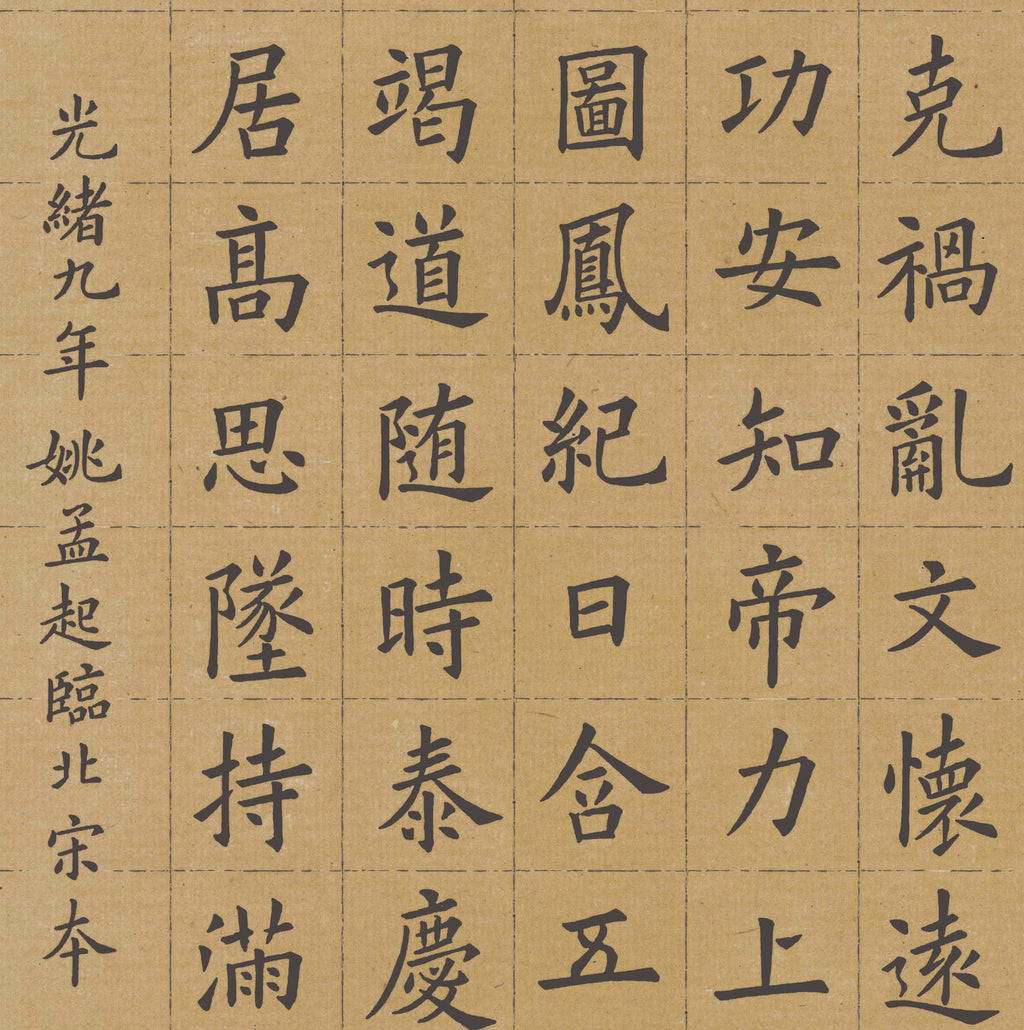 克禍亂文懷遠
功安知帝力上
圖鳳紀日含五
竭道随時泰慶
居髙思墜持滿
光緒九年姚孟起臨北宋本